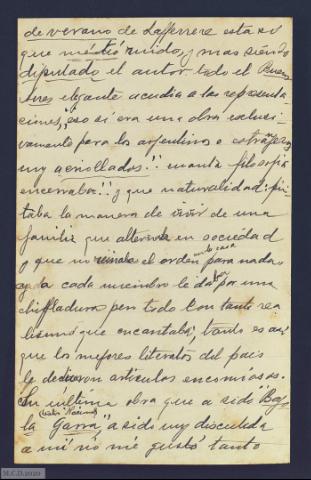 de verano de Laferrere esta si
que metió ruido, y mas siendo
diputado el autor todo el Buenos
Aires elegante acudia a las representa-
ciones, eso si era una obra exlusi-
vamente para los argentinos o estrangeros
muy acriollados!! cuanta filosofia
encerraba!! y que naturalidad: pin-
taba la manera de vivir de una
familia que alternada en sociedad
y que no reinaba el orden para nada
en la casa
y a la cada miembro le daba por una
chifladura pero todo con tanto rea
lismo que encantaba, tanto es asi
que los mejores literatos del pais
le dedicaron articulos encomiosos.
Su última obra que a sido "Bajo
(teatro Nacional)
la Garra", a sido muy discutida
a mi no me gustó tanto
M.C.D.2020